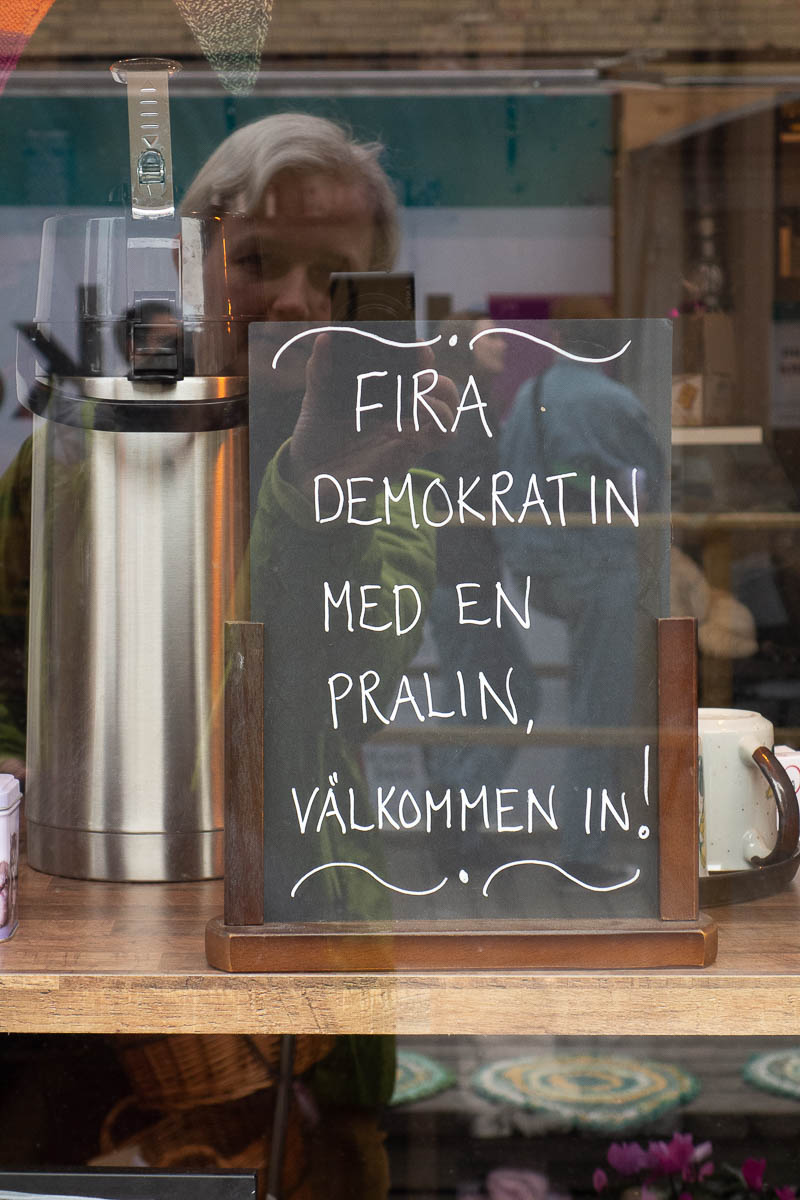 FIRA
DEMOKRATIN
MED EN
PRALIN,
VÄLKOMMEN IN!